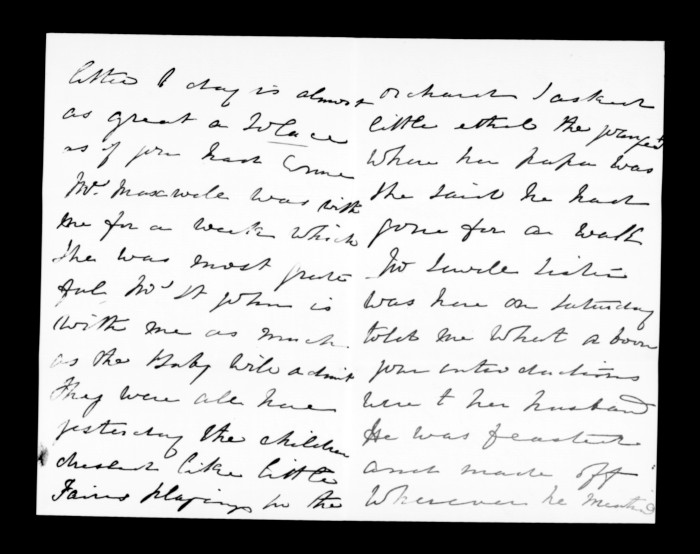 letter to day is almost
as great a solace
as if you had come
Mrs. Maxwell was with
me for a week which
she was most grate
ful Mrs St John is
with me as much
as the Baby will admit
They were all here
yesterday the children
dressed like little
Fairies playing in the
orchard I asked
little ethel the youngest
where her papa was
she said he had
gone for a walk
Sister
was here on Saturday
told me what a boon
your introductions
were to her husband
He was feasted
and made off
Wherever he